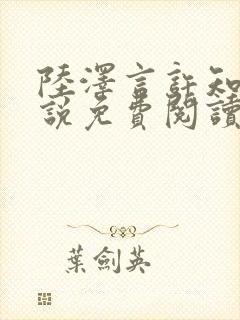 陸澤言許知
說免費閱讀
葉劍英